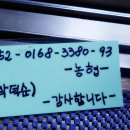 52-0168-3380-93
-농협-
-감사합니다-